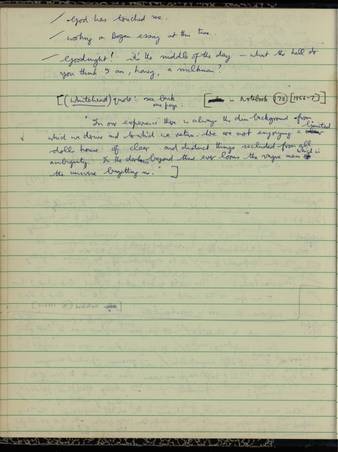 / God has touched me.
/ working on Bacon essay at this time.
/ Goodnight! it's the middle of the day – what the hell do
you think I am, honey, a milkman?
[(Whitehead) quote: see back [ – Notebook (78) [1956–7]]
on page.
"In our experience there is always the dim background from
which we derive and to which we return. We are not enjoying a limited
dolls house of clear and distinct things secluded from all
ambiguity. In the darkness beyond there ever looms the vague mass which is
the universe begetting us." ]